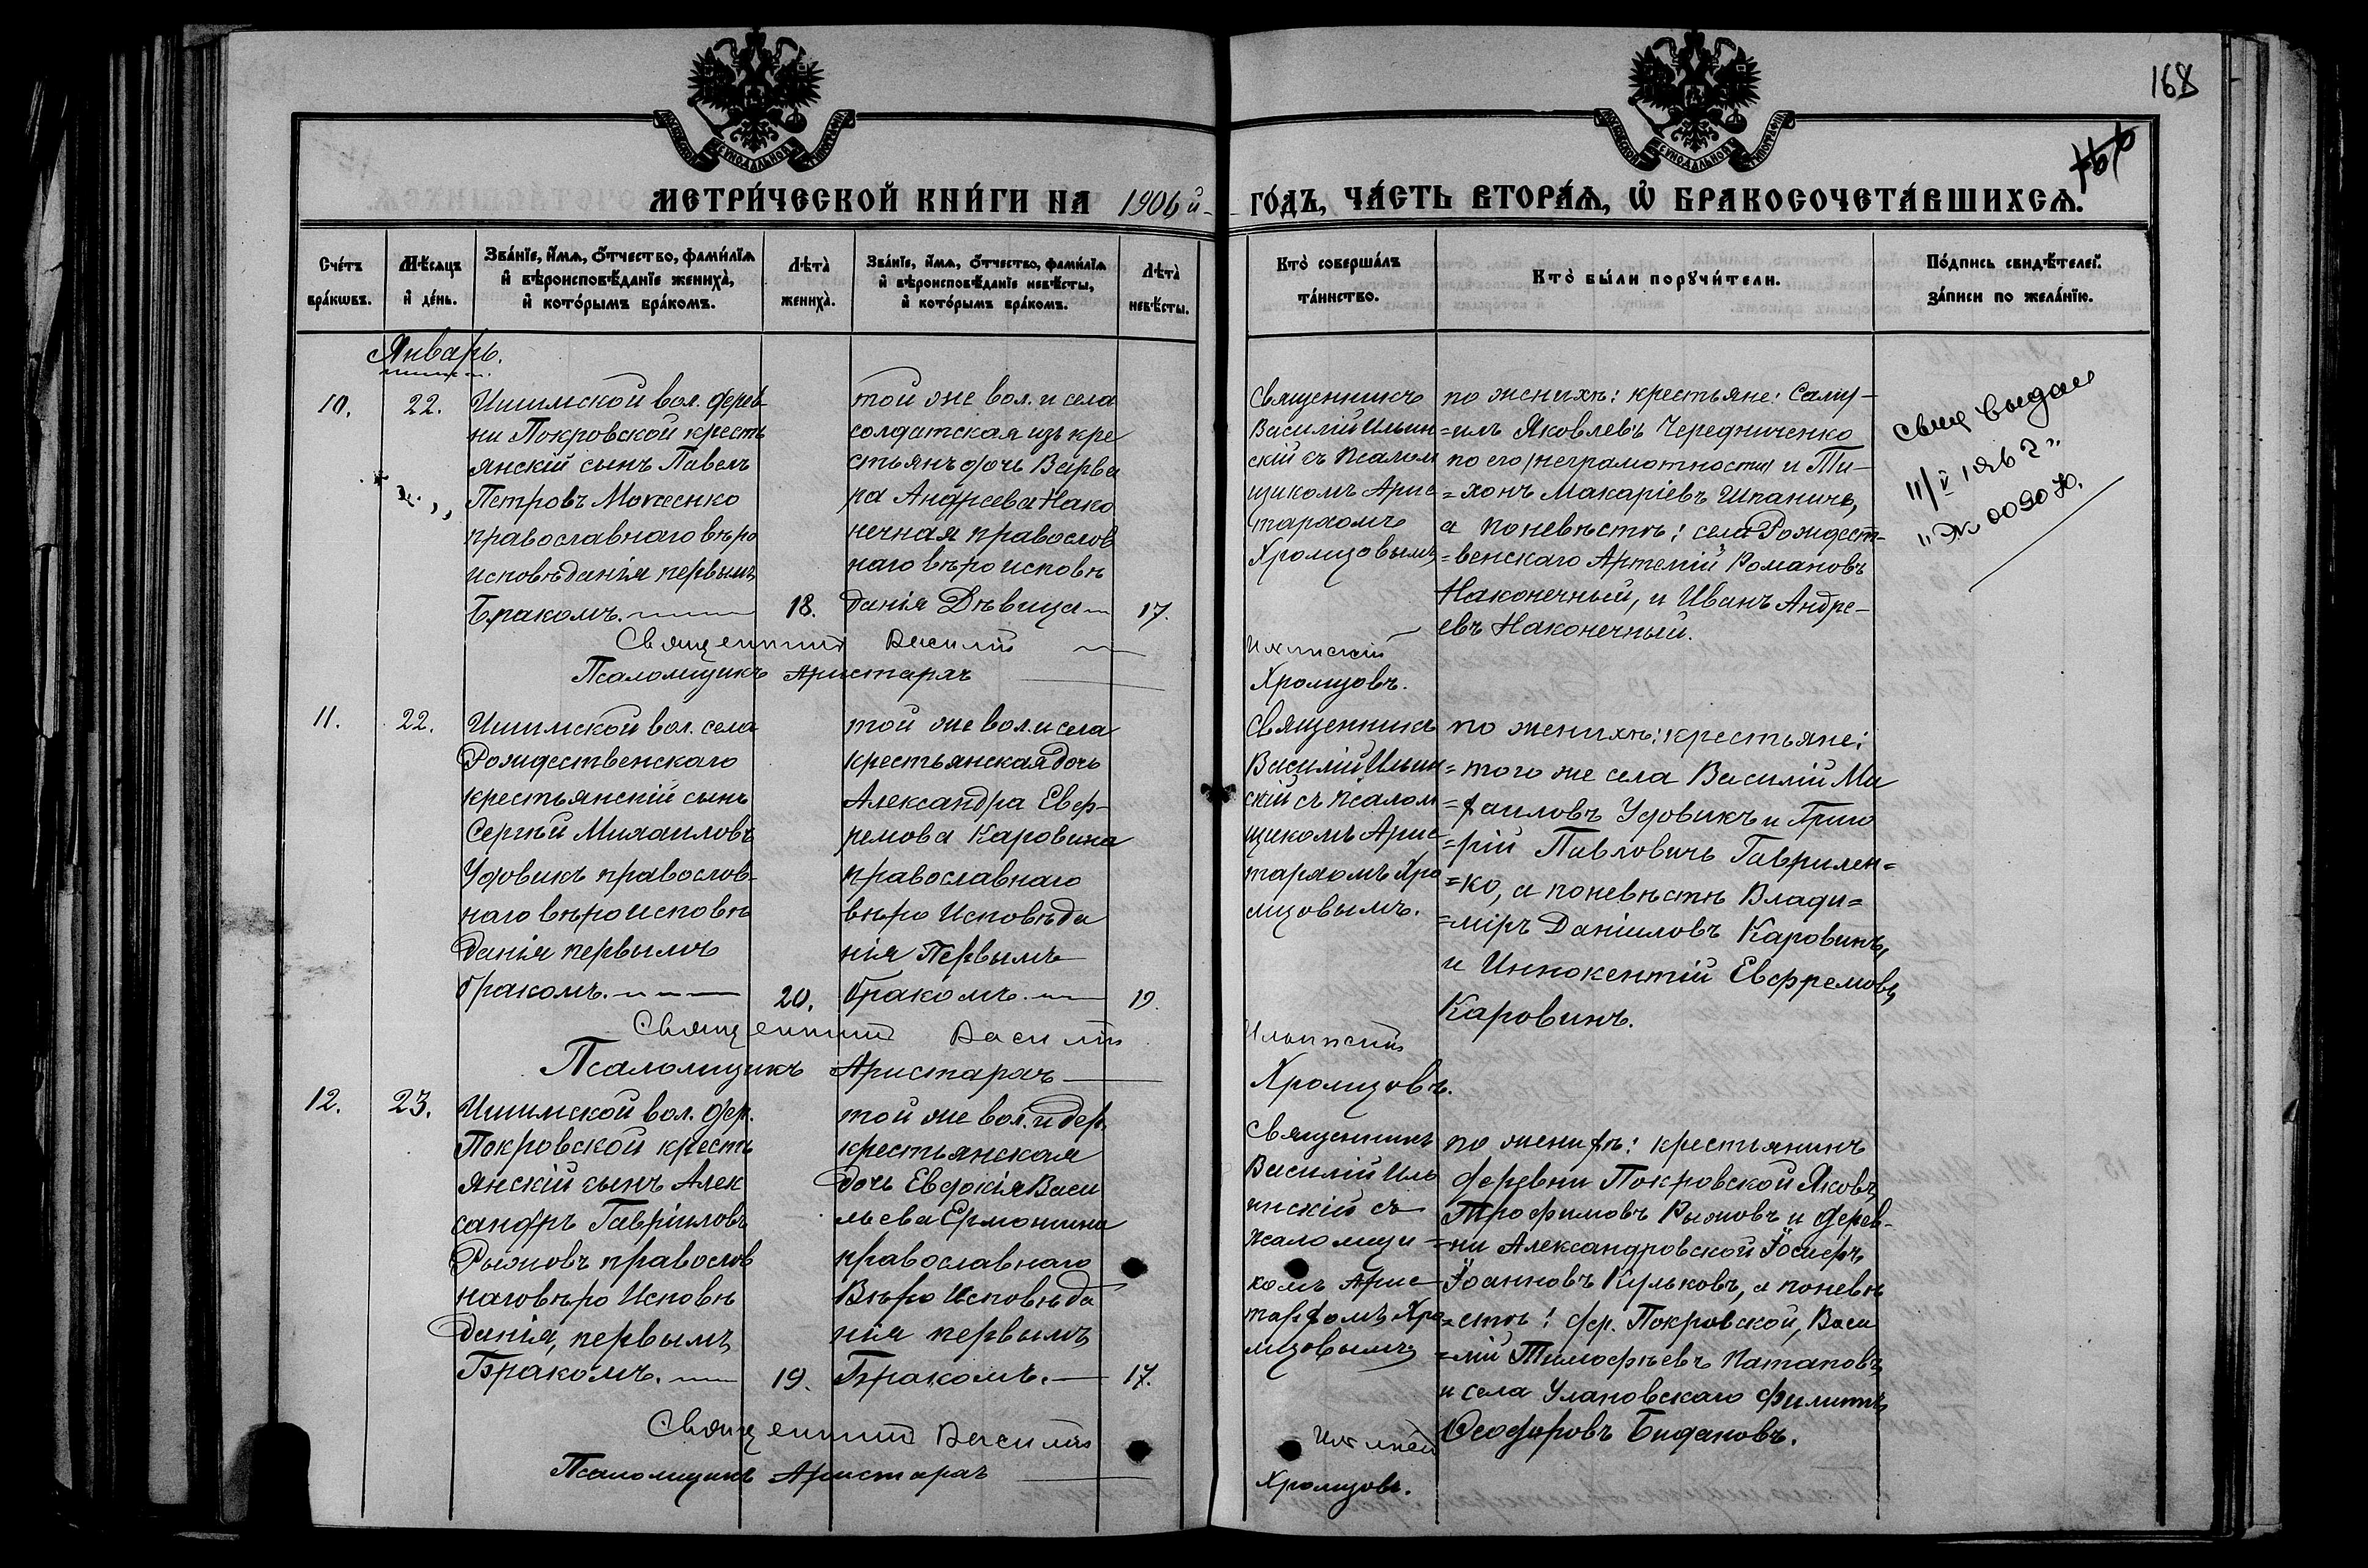 168
166
МОСКОВСКОЙ СѴНОДАЛЬНОЙ ТИПОГРАФІИ
МОСКОВСКОЙ СѴНОДАЛЬНОЙ ТИПОГРАФІИ
МЕТРИ́ЧЕСКОЙ КНИ́ГИ НА 1906 й
ГО́ДЪ, ЧА́СТЬ ВТОРА́Ѧ, Ѡ҆ БРАКОСОЧЕТА́ВШИХСѦ.
Сче́тъ
бра́кѡвъ.
Мѣ́сяцъ
и҆ де́нь.
Зва́нїе, и҆́мѧ, ѻ҆́тчество, фами́лїѧ
и҆ вѣроисповѣ́данїе жениха̀,
и҆ кото́рымъ бра́комъ.
Лѣта̀
жениха̀.
Зва́нїе, и҆́мѧ, ѻ҆́тчество, фами́лїѧ
и҆ вѣроисповѣ́данїе невѣ́сты,
и҆ кото́рымъ бра́комъ.
Лѣта̀
невѣ́сты.
Кто̀ соверша́лъ
та́инство.
Кто̀ бы́ли порꙋчи́тели.
По́дпись свидѣ́телей
за́писи по жела́нїю.
Январь.
10.
22.
Ишимской вол. дерев
ни Покровской кресть
янскій сынъ Павелъ
Петровъ Мокеенко
православнаго вѣро
исповѣданія первымъ
Бракомъ.
18.
той же вол. и села
солдатская изъ кре
стьянъ дочь Варва
ра Андреева Нако
нечная православ
наго вѣро исповѣ
данія Дѣвица
17.
Священникъ
Василій Ильин
скій съ псалом
щикомъ Арис
тархомъ
Хромцовымъ
по женихѣ: крестьяне: Саму-
=илъ Яковлевъ Чередниченко
по его (неграмотности) и Ти-
=хонъ Макаріевъ Шпаничъ,
а по невѣстѣ: села Рождест-
=венскаго Артемій Романовъ
Наконечный, и Иванъ Андре-
евъ Наконечный.
выдан
Священникъ Василій Ильинскій
Псаломщикъ Аристархъ Хромцовъ.
11.
22.
Ишимской вол. села
Рождественскаго
крестьянскій сынъ
Сергѣй Михаиловъ
Удовикъ православ-
наго вѣро исповѣ
данія первымъ
бракомъ.
20.
той же вол. и села
крестьянская дочь
Александра Евф-
ремова Каровина
православнаго
вѣро Исповѣда
нія Первымъ
бракомъ.
19.
Священникъ
Василій Ильин
скій съ псалом
щикомъ Арис
тархомъ Хро
мцовымъ.
по женихѣ: крестьяне:
=того же села Василій Ми
=хаиловъ Удовикъ и Григо
=рій Павловичъ Гаврилен=
=ко, а по невѣстѣ Влади=
=міръ Даніиловъ Каровинъ,
и Иннокентій Евфремовъ
Каровинъ.
Священникъ Василій Ильинскій
Псаломщикъ Аристархъ Хромцовъ.
12.
23.
Ишимской вол. дер.
Покровской кресть
янскій сынъ Алек
сандръ Гавріиловъ
Рыжовъ православ
наго вѣро Исповѣ
данія, первымъ
Бракомъ.
19.
той же вол. и дер.
крестьянская
дочь Евдокія Васи
льева Ермошина
православнаго
Вѣро Исповѣда
нія первымъ
Бракомъ.
17.
Священникъ
Василій Иль
инскій съ
псаломщи-
комъ Арис
тархомъ Хро
мцовымъ
по женихѣ: крестьянинъ
деревни Покровской Яковъ
Трофимовъ Рыжовъ и дерев-
=ни Александровской Іосифъ
Іоанновъ Кульковъ, а по невѣ
=стѣ: дер. Покровской, Васи
=лій Тимофѣевъ Потаповъ
и села Улановскаго Филиппъ
Ѳеодоровъ Бидановъ.
Священникъ Василій Ильинскій
Псаломщикъ Аристархъ Хромцовъ.